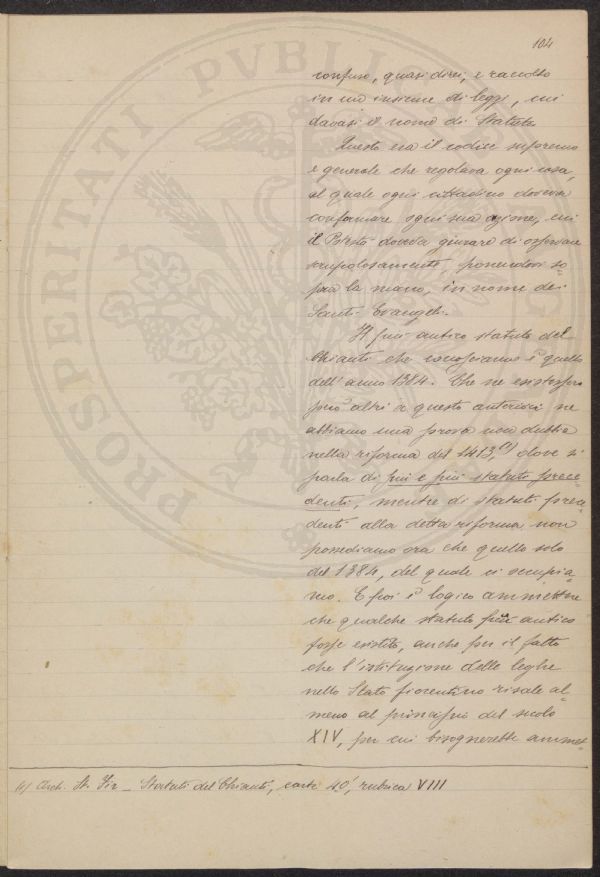 104
confuso, quasi direi, e raccolto
in un insieme di leggi, cui
davasi il nome di Statuto.
Questo era il codice supremo
e generale che regolava ogni cosa,
al quale ogni cittadino doveva
conformare ogni sua azione, cui
il Potestà doveva giurare di osservare
scrupolosamente, ponendovi so-
pra la mano, in nome dei
Santi Evangeli.
Il più antico statuto del
Chianti che conosciamo è quello
dell'anno 1384. Che ne esistessero
però altri a questo anteriori ne
abbiamo una prova non dubbia
nella riforma del 1413,(1) dove si
parla di più e più statuti prece-
denti, mentre di statuti prece-
denti alla detta riforma non
possediamo ora che quello solo
del 1384, del quale ci occupia-
mo. E poi è logico ammettere
che qualche statuto più antico
fosse esistito, anche per il fatto
che l'istituzione delle leghe
nello Stato fiorentino risale al-
meno al principio del secolo
XIV, per cui bisognerebbe ammet-
(1) Arch. St. Fir - Statuti del Chianti, carte 40', rubrica VIII
PROSPERITATI PVBLICAE